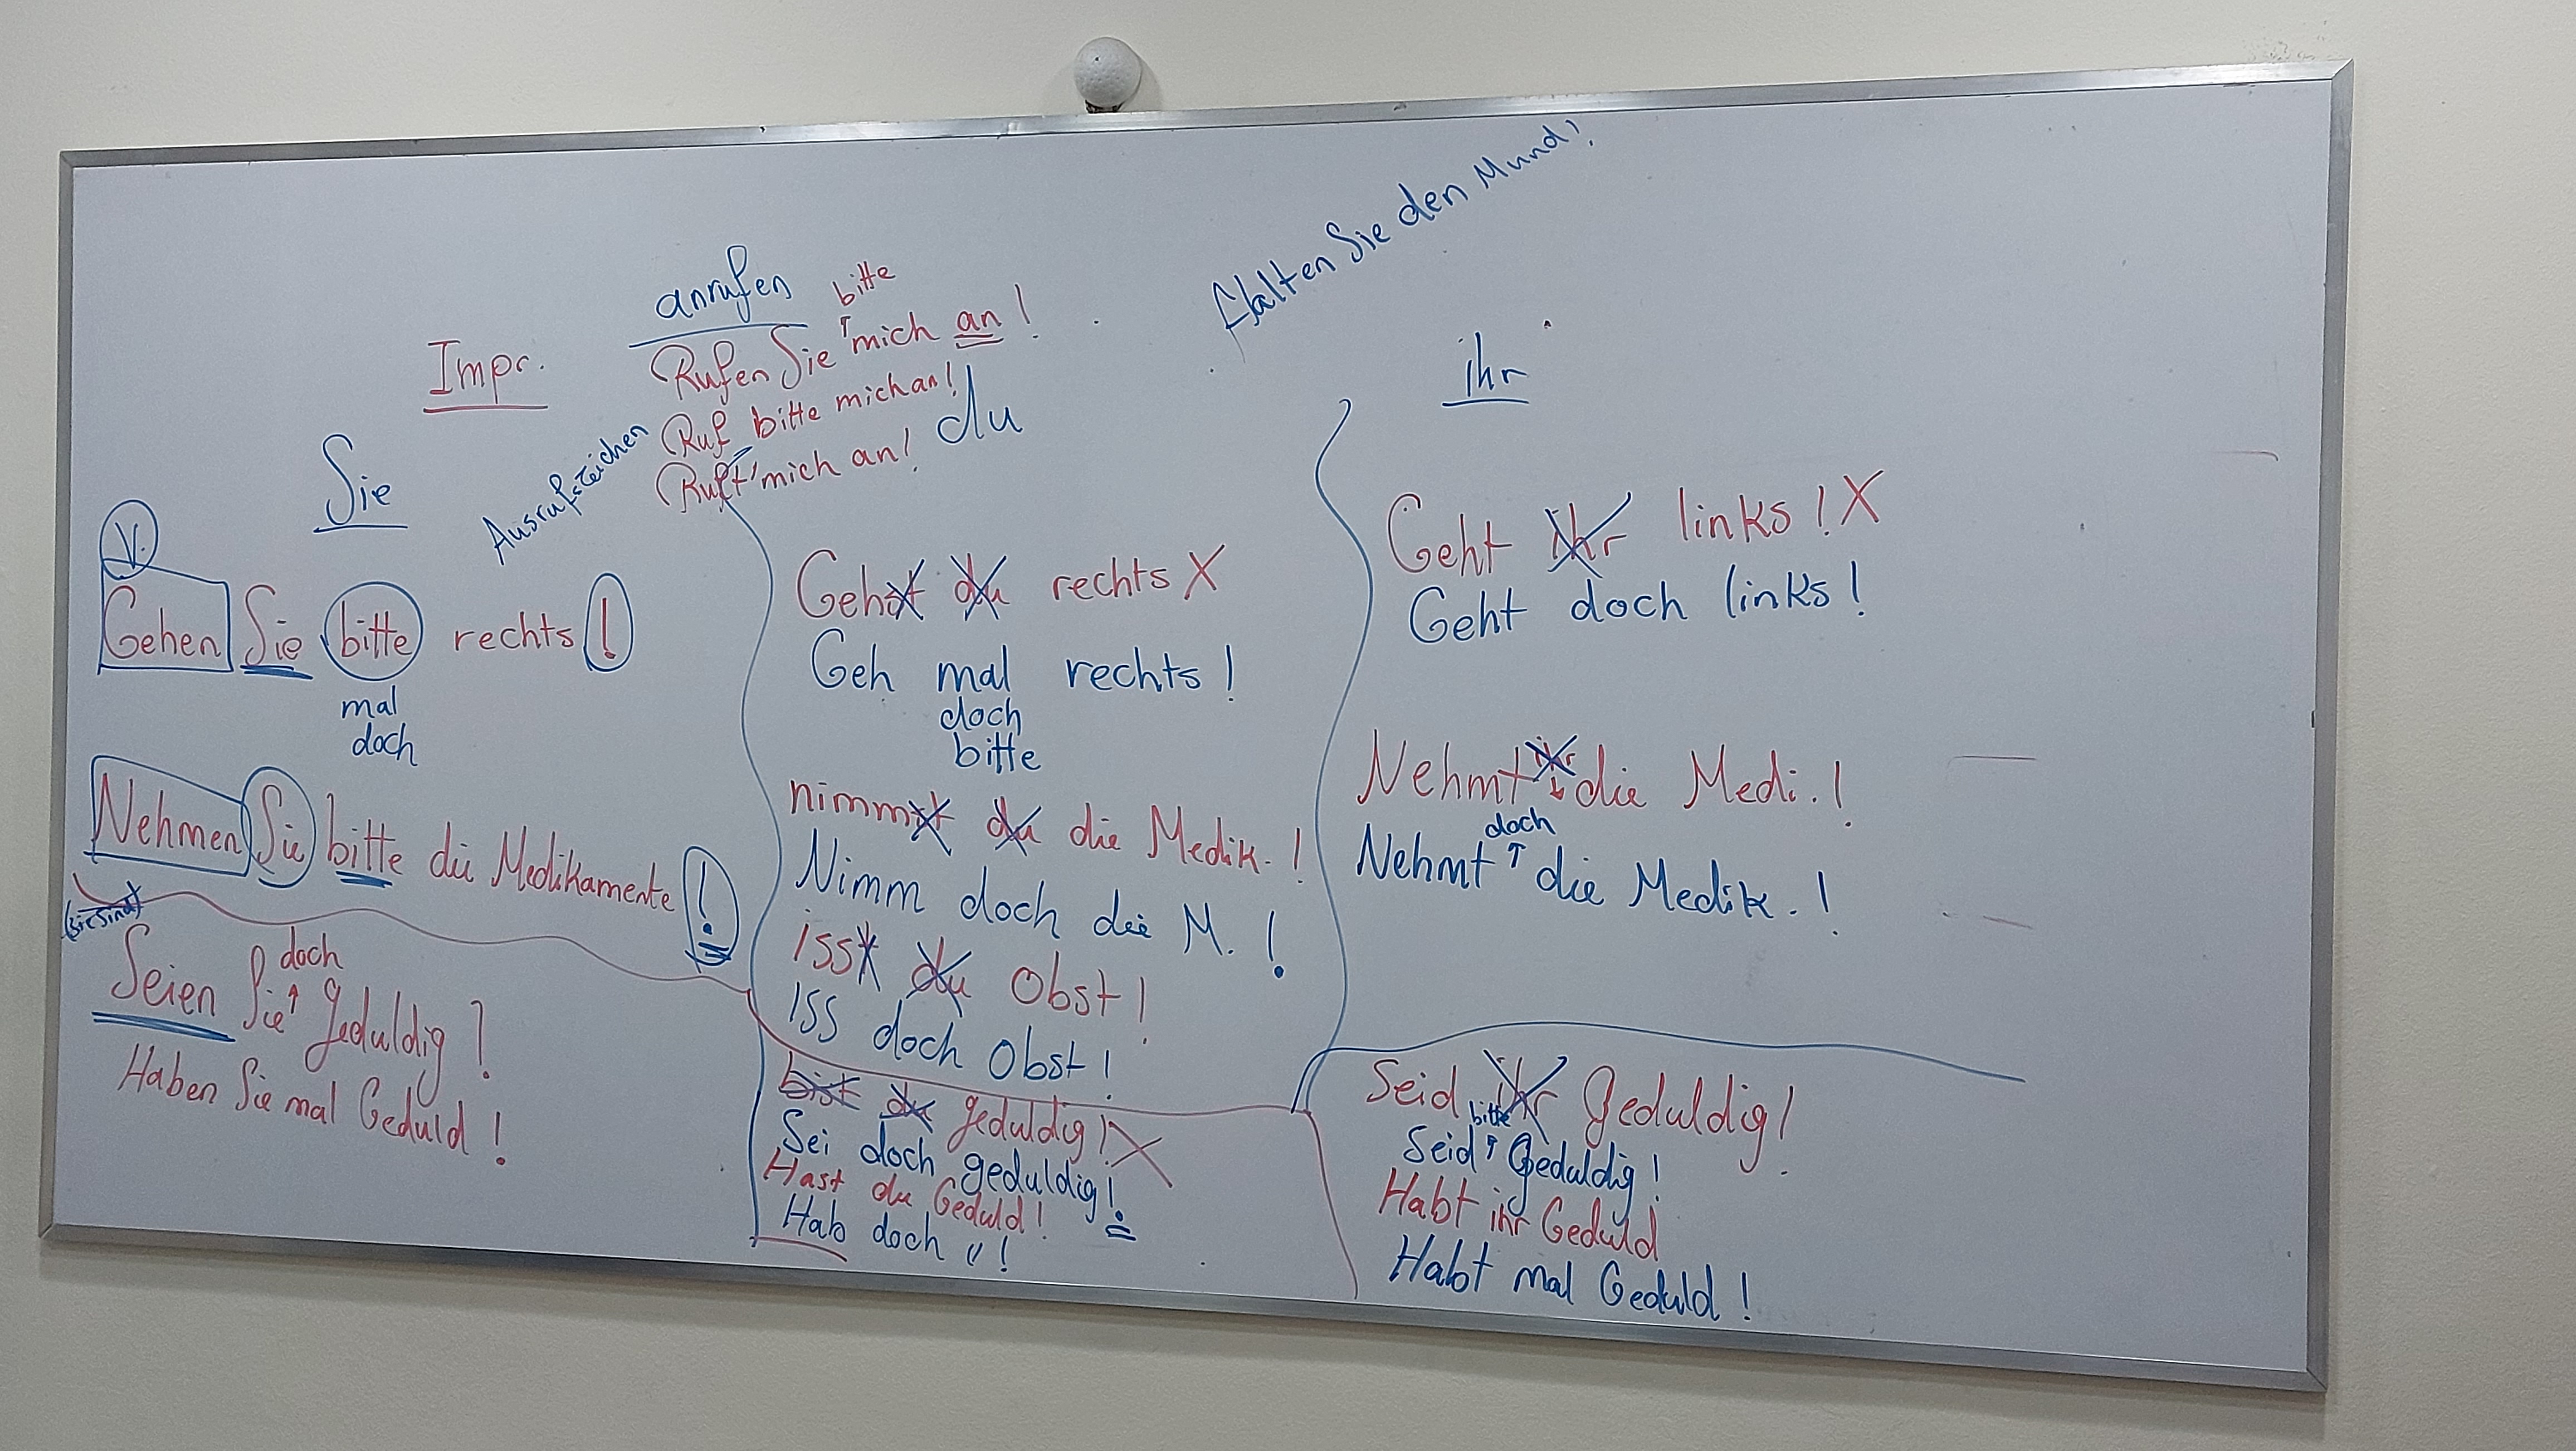 Halten Sie den Mund!
anrufen
bitte
Rufen Sie mich an!
Impr.
Ruf bitte mich an!
Ruft mich an!
du
ihr
Ausrufszeichen
Sie
V.
Gehen Sie bitte rechts!
mal
doch
Nehmen Sie bitte die Medikamente!
(sie sind)
doch
Seien Sie geduldig!
Haben Sie mal Geduld!
Gehst du rechts X
Geh mal rechts!
doch
bitte
nimmst du die Medik.!
Nimm doch die M.!
isst du Obst!
Iss doch Obst!
bist du geduldig! X
Sei doch geduldig!
Hast du Geduld!
Hab doch "!
Geht ihr links! X
Geht doch links!
Nehmt ihr die Medi.!
doch
Nehmt die Medik.!
Seid ihr geduldig!
bitte
Seid geduldig!
Habt ihr Geduld
Habt mal Geduld!